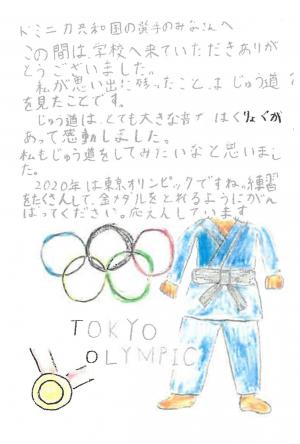 ドミニカ共和国の選手のみなさんへ
この間は、学校へ来ていただきありが
とうございました。
私が思い出に残ったことは、じゅう道
を見たことです。
じゅう道は、とても大きな音で はくりょくが
あって感動しました。
私もじゅう道をしてみたいなと思いまし
た。
2020年は東京オリンピックですね。練習
をたくさんして、金メダルをとれるようにがん
ばってください。応えんしています
TOKYO
OLYMPIC